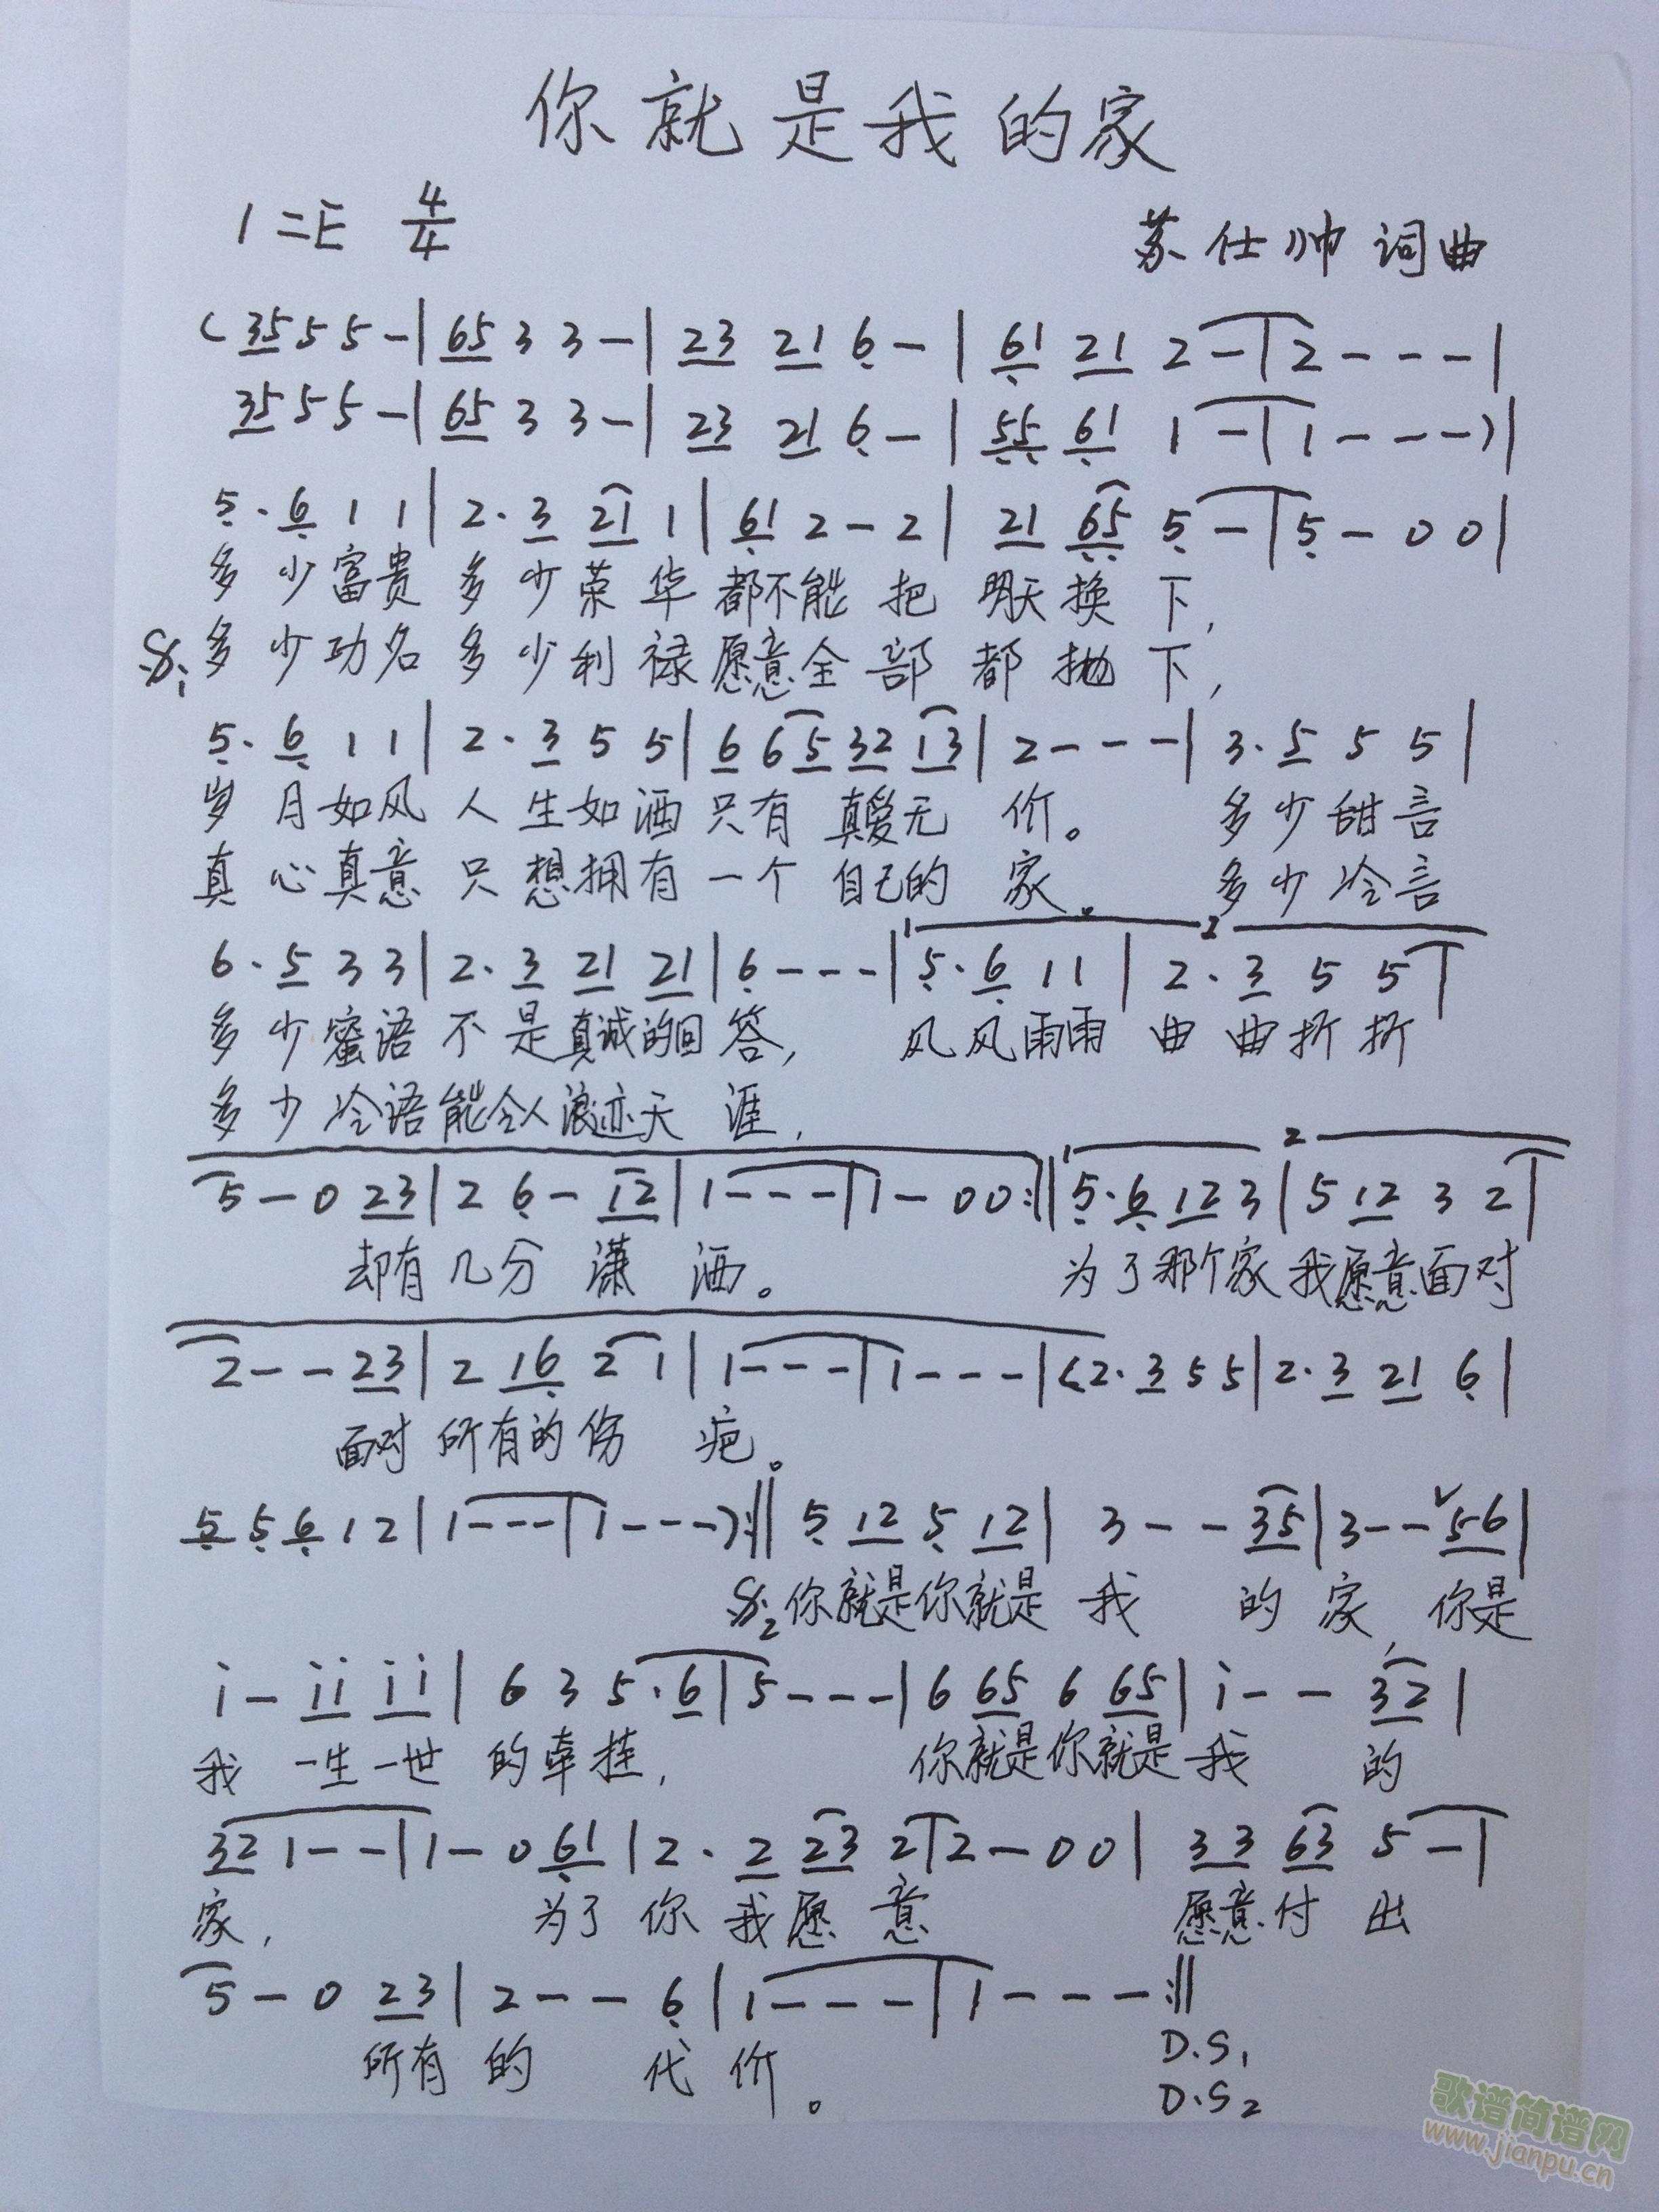 你就是我的家
1=E 4/4 苏仕帅 词曲
( 35 5 5 - | 65 3 3 - | 23 21 6 - | 61 21 2 - | 2 - - - |
35 5 5 - | 65 3 3 - | 23 21 6 - | 55 61 1 - | 1 - - - ) |
5 · 6 1 1 | 2 · 3 21 1 | 61 2 - 2 | 21 65 5 - | 5 - 0 0 |
多少富贵 多少荣华 都不能把 明天换下,
S1 多少功名 多少利禄 愿意全部都抛下,
5 · 6 1 1 | 2 · 3 5 5 | 6 6 5 32 13 | 2 - - - | 3 · 5 5 5 |
岁月如风 人生如洒 只有真爱无价。 多少甜言
真心真意 只想拥有一个自己的家。 多少冷言
6 · 5 3 3 | 2 · 3 21 21 | 6 - - - | 1 5 · 6 1 1 | 2 2 · 3 5 5 |
多少蜜语 不是真诚的回答, 风风雨雨 曲曲折折
多少冷语 能令人浪迹天涯,
5 - 0 23 | 2 6 - 12 | 1 - - - | 1 - 0 0 :‖ 1 5 · 6 12 3 | 2 5 12 3 2 |
却有几分潇洒。 为了那个家 我愿意面对
2 - - 23 | 2 16 2 1 | 1 - - - | 1 - - - | ( 2 · 3 5 5 | 2 · 3 21 6 |
面对所有的伤疤。
5 5 6 1 2 | 1 - - - | 1 - - - ) :‖ 5 12 5 12 | 3 - - 35 | 3 - - ∨ 56 |
S2 你就是你就是我的家, 你是
i - ii ii | 6 3 5 · 6 | 5 - - - | 6 65 6 65 | i - - 32 |
我一生一世的牵挂, 你就是你就是我的
32 1 - - | 1 - 0 61 | 2 · 2 23 2 | 2 - 0 0 | 33 63 5 - |
家, 为了你我愿意 愿意付出
5 - 0 23 | 2 - - 6 | 1 - - - | 1 - - - :‖
所有的代价。 D.S1
D.S2
歌谱简谱网
www.jianpu.cn